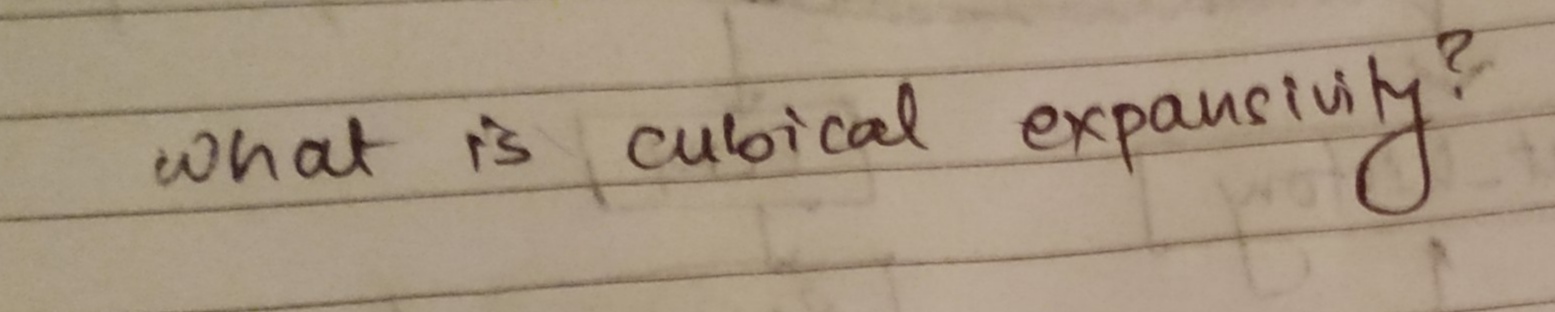 what is cubical expansivity?